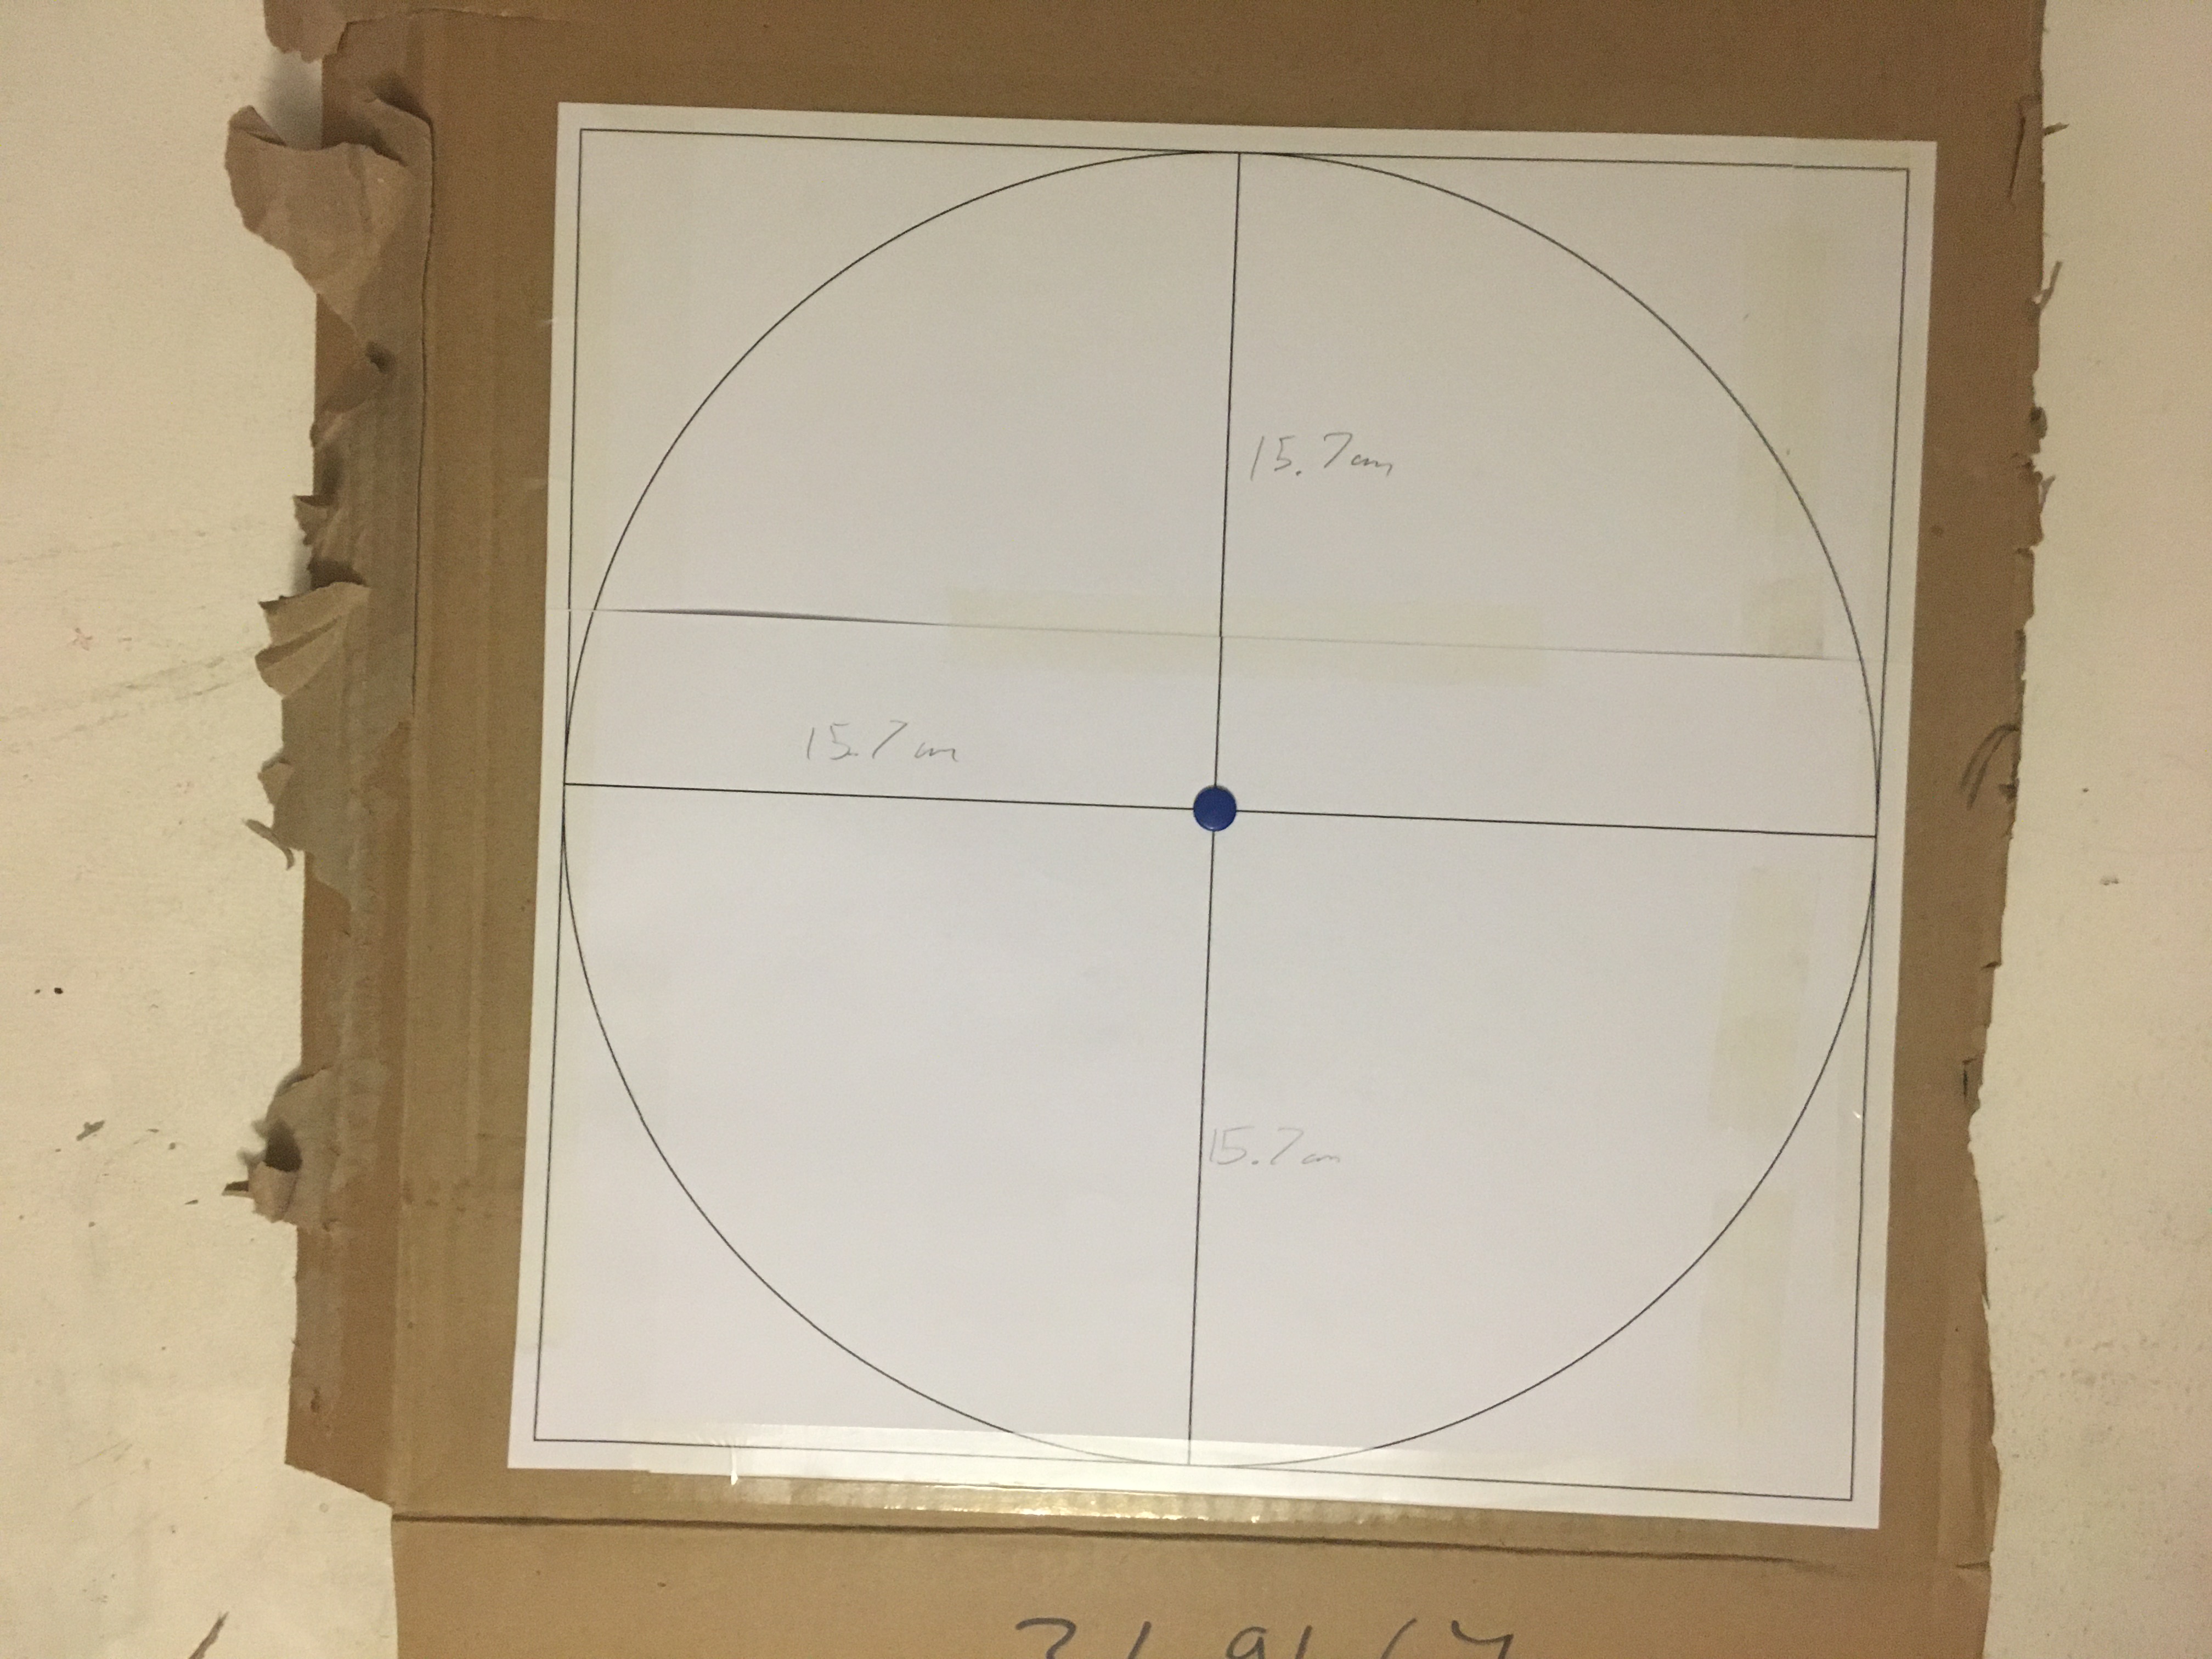 15.7cm
15.7cm
15.7cm